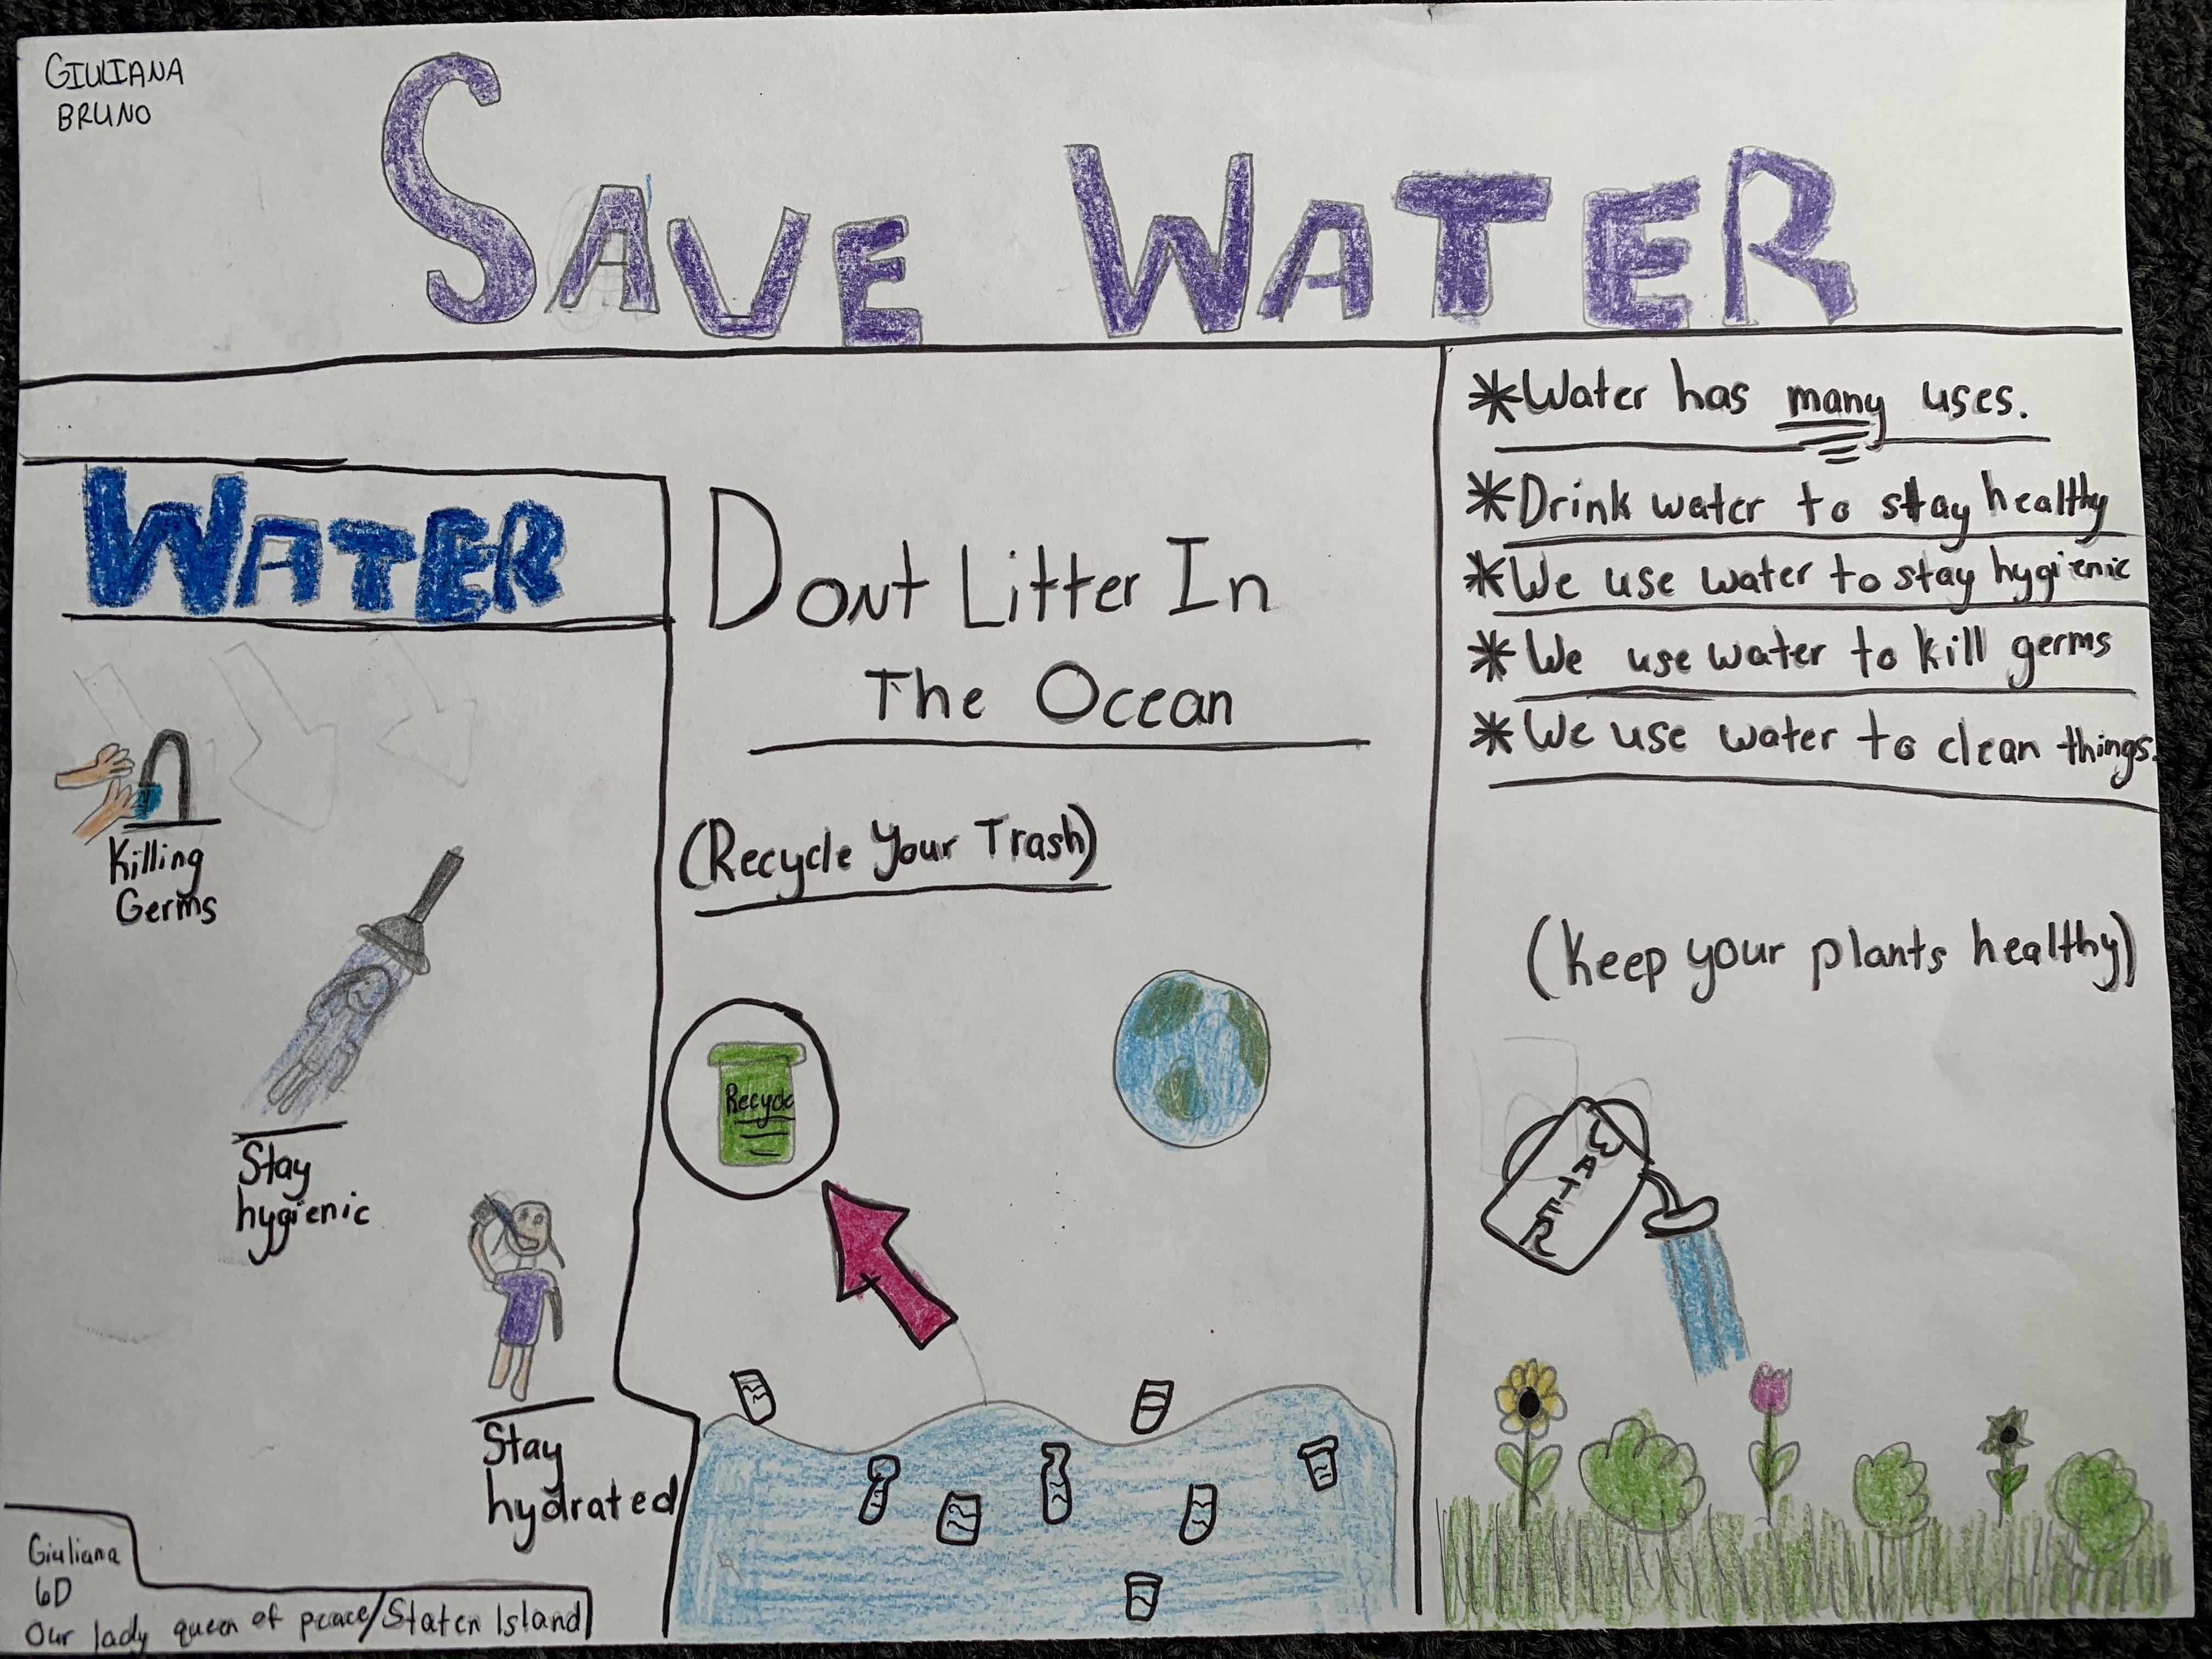 GIULIANA
BRUNO
SAVE WATER
WATER
Killing
Germs
Stay
hygienic
Stay
hydrated
Giuliana
6D
Our lady queen of peace/Staten Island
Dont Litter In
The Ocean
(Recycle Your Trash)
Recycle
*Water has many uses.
*Drink water to stay healthy
*We use water to stay hygienic
*We use water to kill germs
*We use water to clean things.
(Keep your plants healthy)
WATER